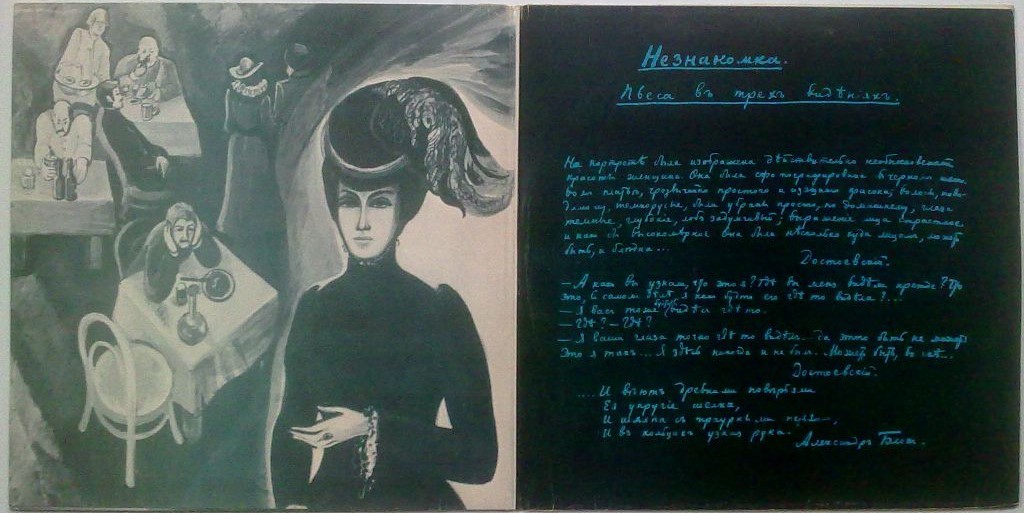 Незнакомка.
Пьеса въ трехъ видѣнiяхъ.
На портретѣ была изображена дѣйствительно необыкновенной
красоты женщина. Она была сфотографирована въ черномъ шелко-
вомъ платьѣ, чрезвычайно простого и изящнаго фасона; волосы, пови-
димому, темнорусые, были убраны просто, по домашнему; глаза
темные, глубокiе, лобъ задумчивый; выраженiе лица страстное
и какъ бы высокомѣрное. Она была нѣсколько худа лицомъ, можетъ
быть, и блѣдна...
Достоевскiй.
— А какъ вы узнали, что это я? Гдѣ вы меня видѣли прежде? Что
это, въ самомъ дѣлѣ, я какъ будто его гдѣ то видѣла?...
— Я васъ тоже будто видѣлъ гдѣ то.
— Гдѣ? — Гдѣ?
— Я ваши глаза точно гдѣ то видѣлъ... да этого быть не можетъ!
Это я такъ... Я здѣсь никогда и не былъ. Можетъ быть, во снѣ...
Достоевскiй.
....И вѣютъ древними повѣрьями
Ея упругiе шелка,
И шляпа съ траурными перьями,
И въ кольцахъ узкая рука.
Александръ Блокъ.